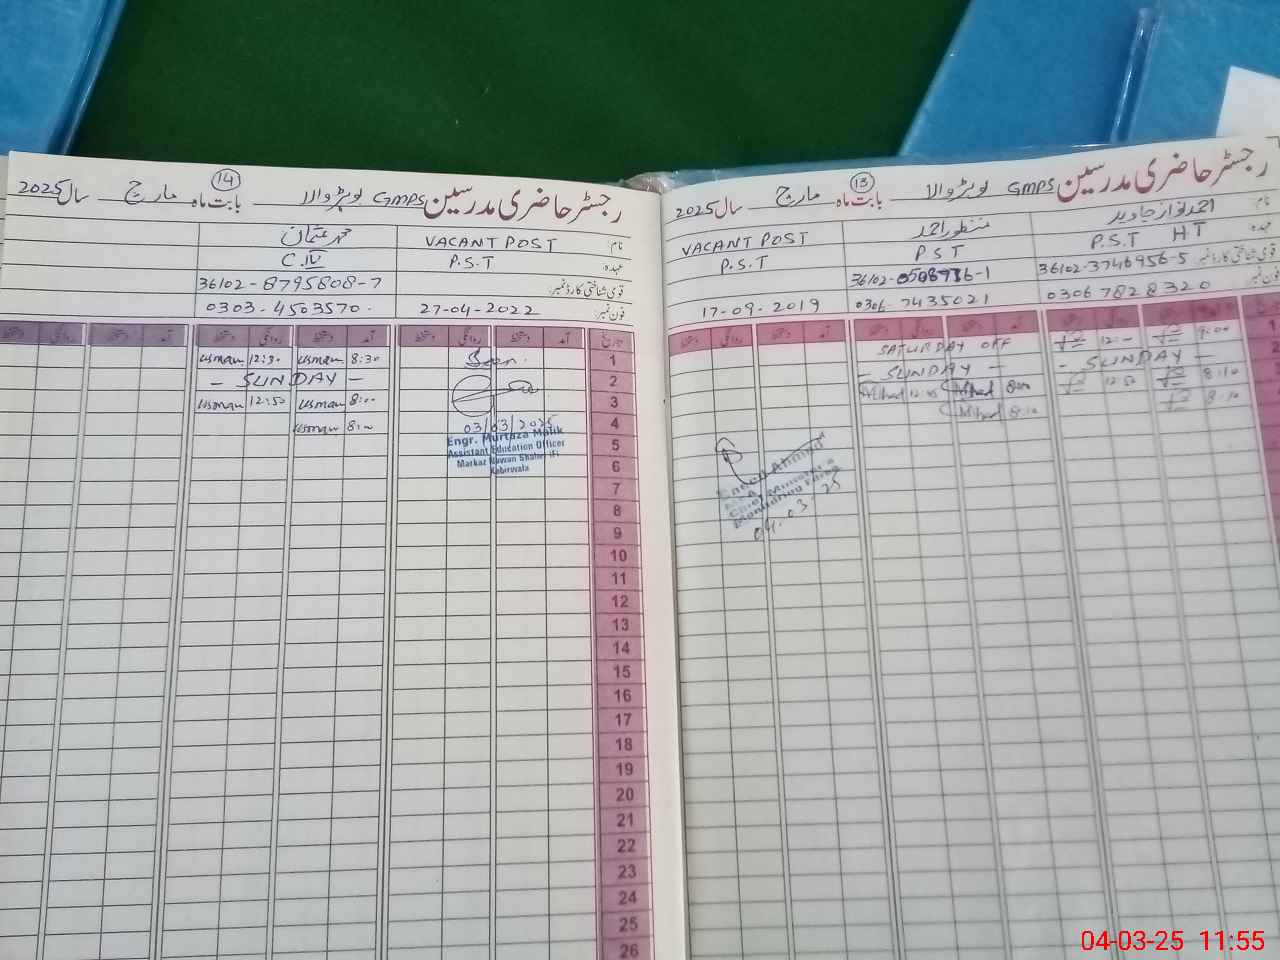 رجسٹر حاضری مدرسین GMPS لوہڑ والا بابت ماہ 13 مارچ سال 2025
نام: احمد نواز جاوید
منظور احمد
VACANT POST
عہدہ: P.S.T HT
PST
P.S.T
قومی شناختی کارڈ نمبر: 36102-3746956-5
فون نمبر: 0306 7828320
0306 7435021
17-09-2019
9:00
12:00
SATURDAY OFF
- SUNDAY -
- SUNDAY -
8:10
12:50
8:00
12:45
8:10
8:10
04.03.25
رجسٹر حاضری مدرسین GMPS لوہڑ والا بابت ماہ 14 مارچ سال 2025
نام: VACANT POST
محمد عثمان
عہدہ: P.S.T
C.IV
قومی شناختی کارڈ نمبر:
36102-8795808-7
فون نمبر: 27-04-2022
0303-4503570
تاریخ آمد دستخط روانگی دستخط
1 8:30 usman 12:30 usman
2 - SUNDAY -
3 8:00 usman 12:50 usman
4 8:00 usman
03/03/2025
Engr. Murtaza Malik
Assistant Education Officer
Markaz Nawan Shaher (F)
Kabirwala
5
6
7
8
9
10
11
12
13
14
15
16
17
18
19
20
21
22
23
24
25
26
04-03-25 11:55